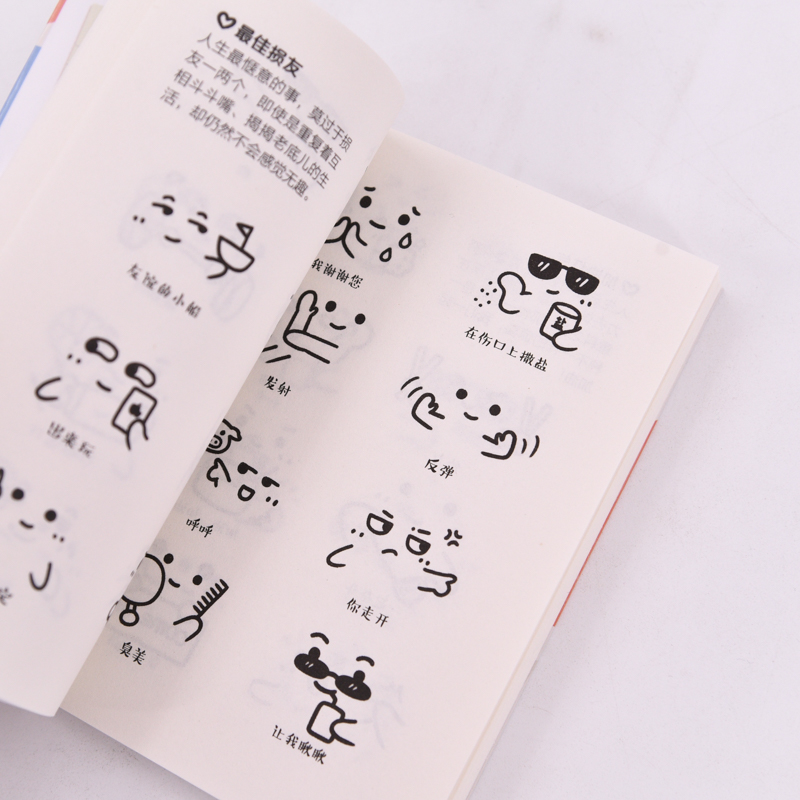 最佳损友
人生最惬意的事，莫过于损
友一两个，即使是重复着互
相斗斗嘴、揭揭老底儿的生
活，却仍然不会感觉无趣。
友谊的小船
出来玩
我谢谢您
发射
呼呼
臭美
盐
在伤口上撒盐
反弹
你走开
让我瞅瞅